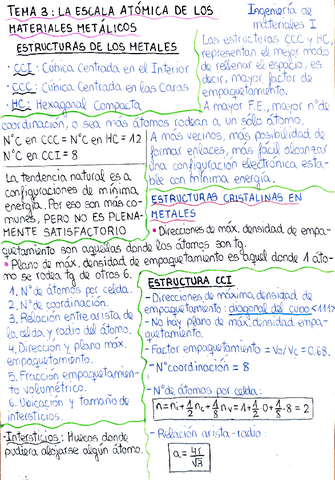 TEMA 3: LA ESCALA ATÓMICA DE LOS
MATERIALES METÁLICOS
Ingeniería de
materiales I
ESTRUCTURAS DE LOS METALES
· CCI: Cúbica Centrada en el Interior
· CCC: Cúbica Centrada en las Caras
· HC: Hexagonal Compacta
Las estructuras CCC y HC,
representan el mejor modo
de rellenar el espacio, es
decir, mayor factor de
empaquetamiento.
A mayor F.E., mayor nº de
coordinación, o sea más átomos rodean a un sólo átomo.
NºC en CCC = NºC en HC = 12
NºC en CCI = 8
A más vecinos, más posibilidad de
formar enlaces, más fácil alcanzar
una configuración electrónica esta-
ble con mínima energía.
La tendencia natural es a
configuraciones de mínima
energía. Por eso son más co-
munes, PERO NO ES PLENA-
MENTE SATISFACTORIO
ESTRUCTURAS CRISTALINAS EN
METALES
• Direcciones de máx. densidad de empa-
quetamiento son aquellas donde las átomos son tg.
• Plano de máx. densidad de empaquetamiento es aquel donde 1 áto-
mo se rodea tg de otros 6.
1. Nº de átomos por celda.
2. Nº de coordinación.
3. Relación entre arista de
la celda y radio del átomo.
4. Dirección y plano máx.
empaquetamiento.
5. Fracción empaquetamien-
to volumétrico.
6. Ubicación y tamaño de
intersticios.
· Intersticios: Huecos donde
pudiera alojarse algún átomo.
ESTRUCTURA CCI
- Direcciones de máxima densidad de
empaquetamiento: diagonal del cubo <111>
- No hay plano de máx. densidad empa-
quetamiento.
- Factor empaquetamiento = Vo/Vc = 0.68.
- Nº coordinación = 8
- Nº de átomos por celda:
n = ni + 1/2 nc + 1/8 nv = 1 + 1/2·0 + 1/8·8 = 2
- Relación arista-radio:
a = 4r/√3